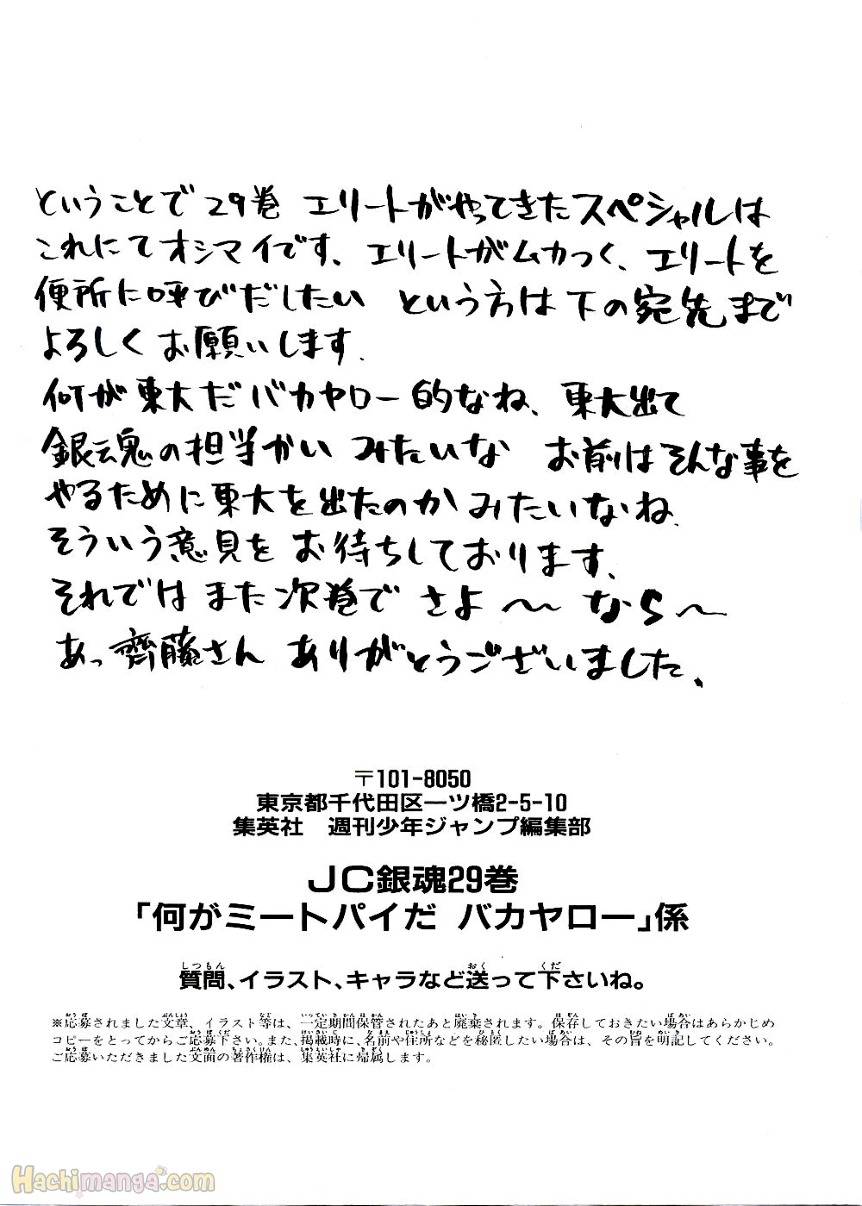 ということで29巻 エリートがやってきたスペシャルは
これにてオシマイです、エリートがムカつく、エリートを
便所に呼びだしたい という方は下の宛先まで
よろしくお願いします.
何が東大だバカヤロー的なね、東大出て
銀魂の担当かい みたいな お前はそんな事を
やるために東大を出たのかみたいなね.
そういう意見をお待ちしております、
それでは また次巻で さよ〜なら〜
あっ齊藤さん ありがとうございました、
〒101-8050
東京都千代田区一ツ橋2-5-10
集英社 週刊少年ジャンプ編集部
JC銀魂29巻
「何がミートパイだ バカヤロー」係
しつもん おく くだ
質問、イラスト、キャラなど送って下さいね。
※応募されました文章、イラスト等は、一定期間保管されたあと廃棄されます。保存しておきたい場合はあらかじめ
コピーをとってからご応募下さい。また、掲載時に、名前や住所などを秘匿したい場合は、その旨を明記してください。
ご応募いただきました文面の著作権は、集英社に帰属します。
Hachimanga.com